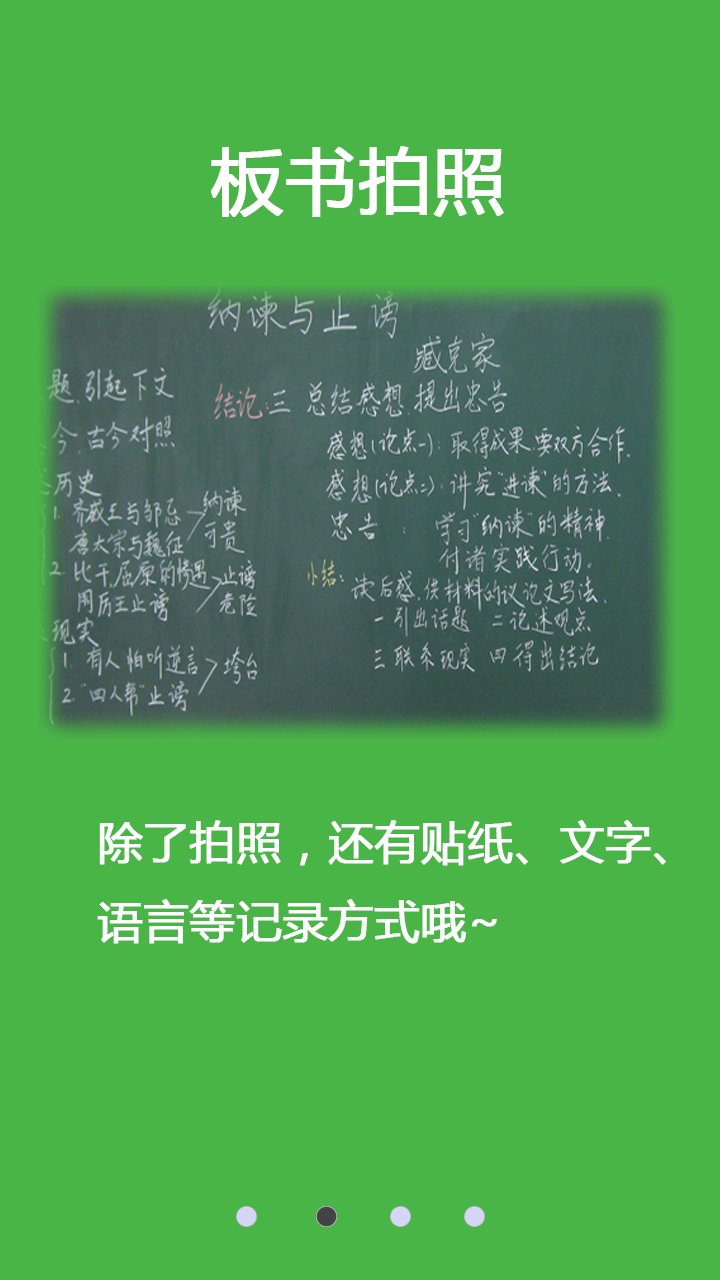 板书拍照
纳谏与止谤
臧克家
题.引起下文
今.古今对照
历史
1. 齐威王与邹忌
唐太宗与魏征
纳谏
可贵
2. 比干,屈原的惨遇
周厉王止谤
止谤
危险
现实
1. 有人怕听逆言
2. “四人帮”止谤
垮台
结论:三 总结感想.提出忠告
感想(论点一): 取得成果,要双方合作.
感想(论点二): 讲究“进谏”的方法.
忠告 : 学习“纳谏”的精神.
付诸实践行动。
小结: 读后感.供材料的议论文写法.
一引出话题 二论述观点
三联系现实 四得出结论
除了拍照，还有贴纸、文字、
语言等记录方式哦~